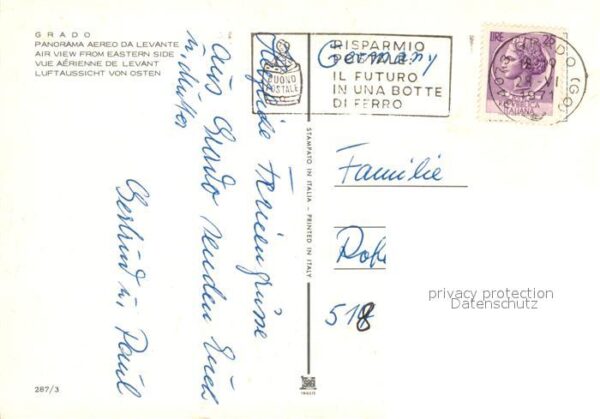 GRADO
PANORAMA AEREO DA LEVANTE
AIR VIEW FROM EASTERN SIDE
VUE AÉRIENNE DE LEVANT
LUFTAUSSICHT VON OSTEN
Feriengrüsse
aus Grado senden Euch
Gertrud u. Paul
287/3
STAMPATO IN ITALIA - PRINTED IN ITALY
BUONO
POSTALE
RISPARMIO
POSTALE:
IL FUTURO
IN UNA BOTTE
DI FERRO
Germany
LIRE
ITALIANA
GRADO (GO)
VI
1971
Familie
518
privacy protection
Datenschutz